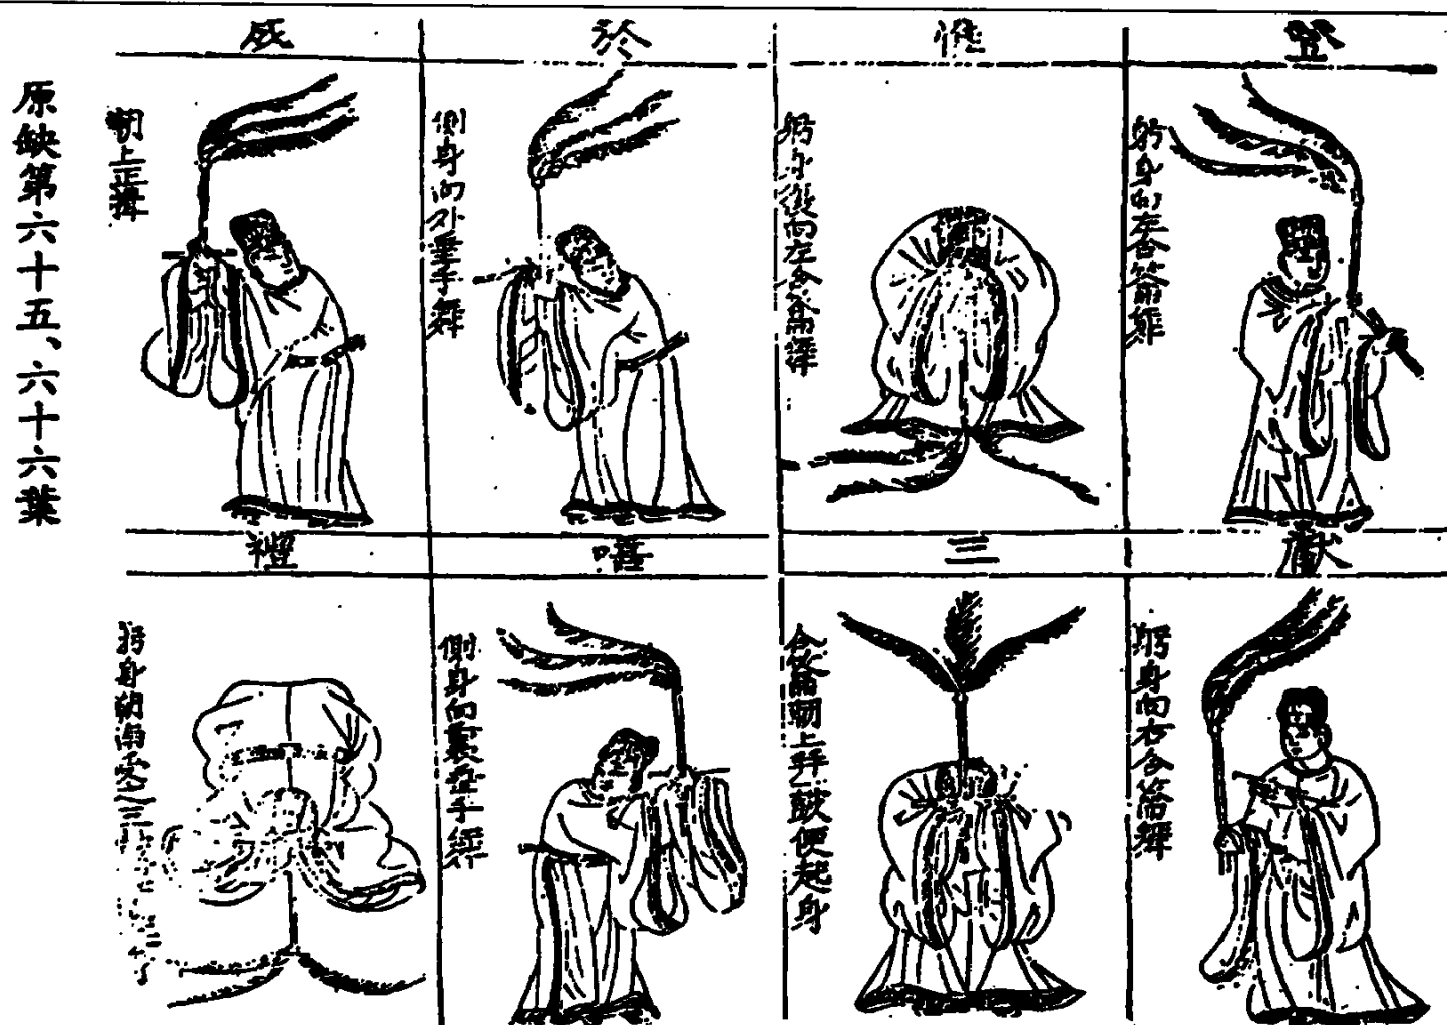 登
躬身向左合籥舞
惟
躬身復向左合籥舞
於
側身向外垂手舞
成
朝上正揖
獻
躬身向右合籥舞
三
合籥朝上拜一鼓便起身
嘻
側身向裏垂手舞
禮
躬身朝受之三
原缺第六十五、六十六葉